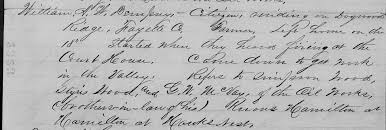 William A. W. Dempsey - Citizen, residing on Dogwood
Ridge, Fayette Co Farmer, Left home on the
18" Started when they heard firing at the
Court House. Come down to get work
in the Valley. Refers to Simpson Wood,
Wood, and G. W. McVey, of the Oil Works,
(brother-in-law of his) Knows Hamilton
Hamilton at Hawks Nest.